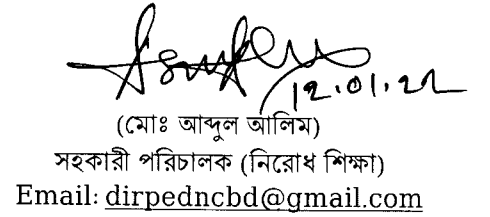 12.01.22
(মোঃ আব্দুল আলিম)
সহকারী পরিচালক (নিরোধ শিক্ষা)
Email: dirpedncbd@gmail.com